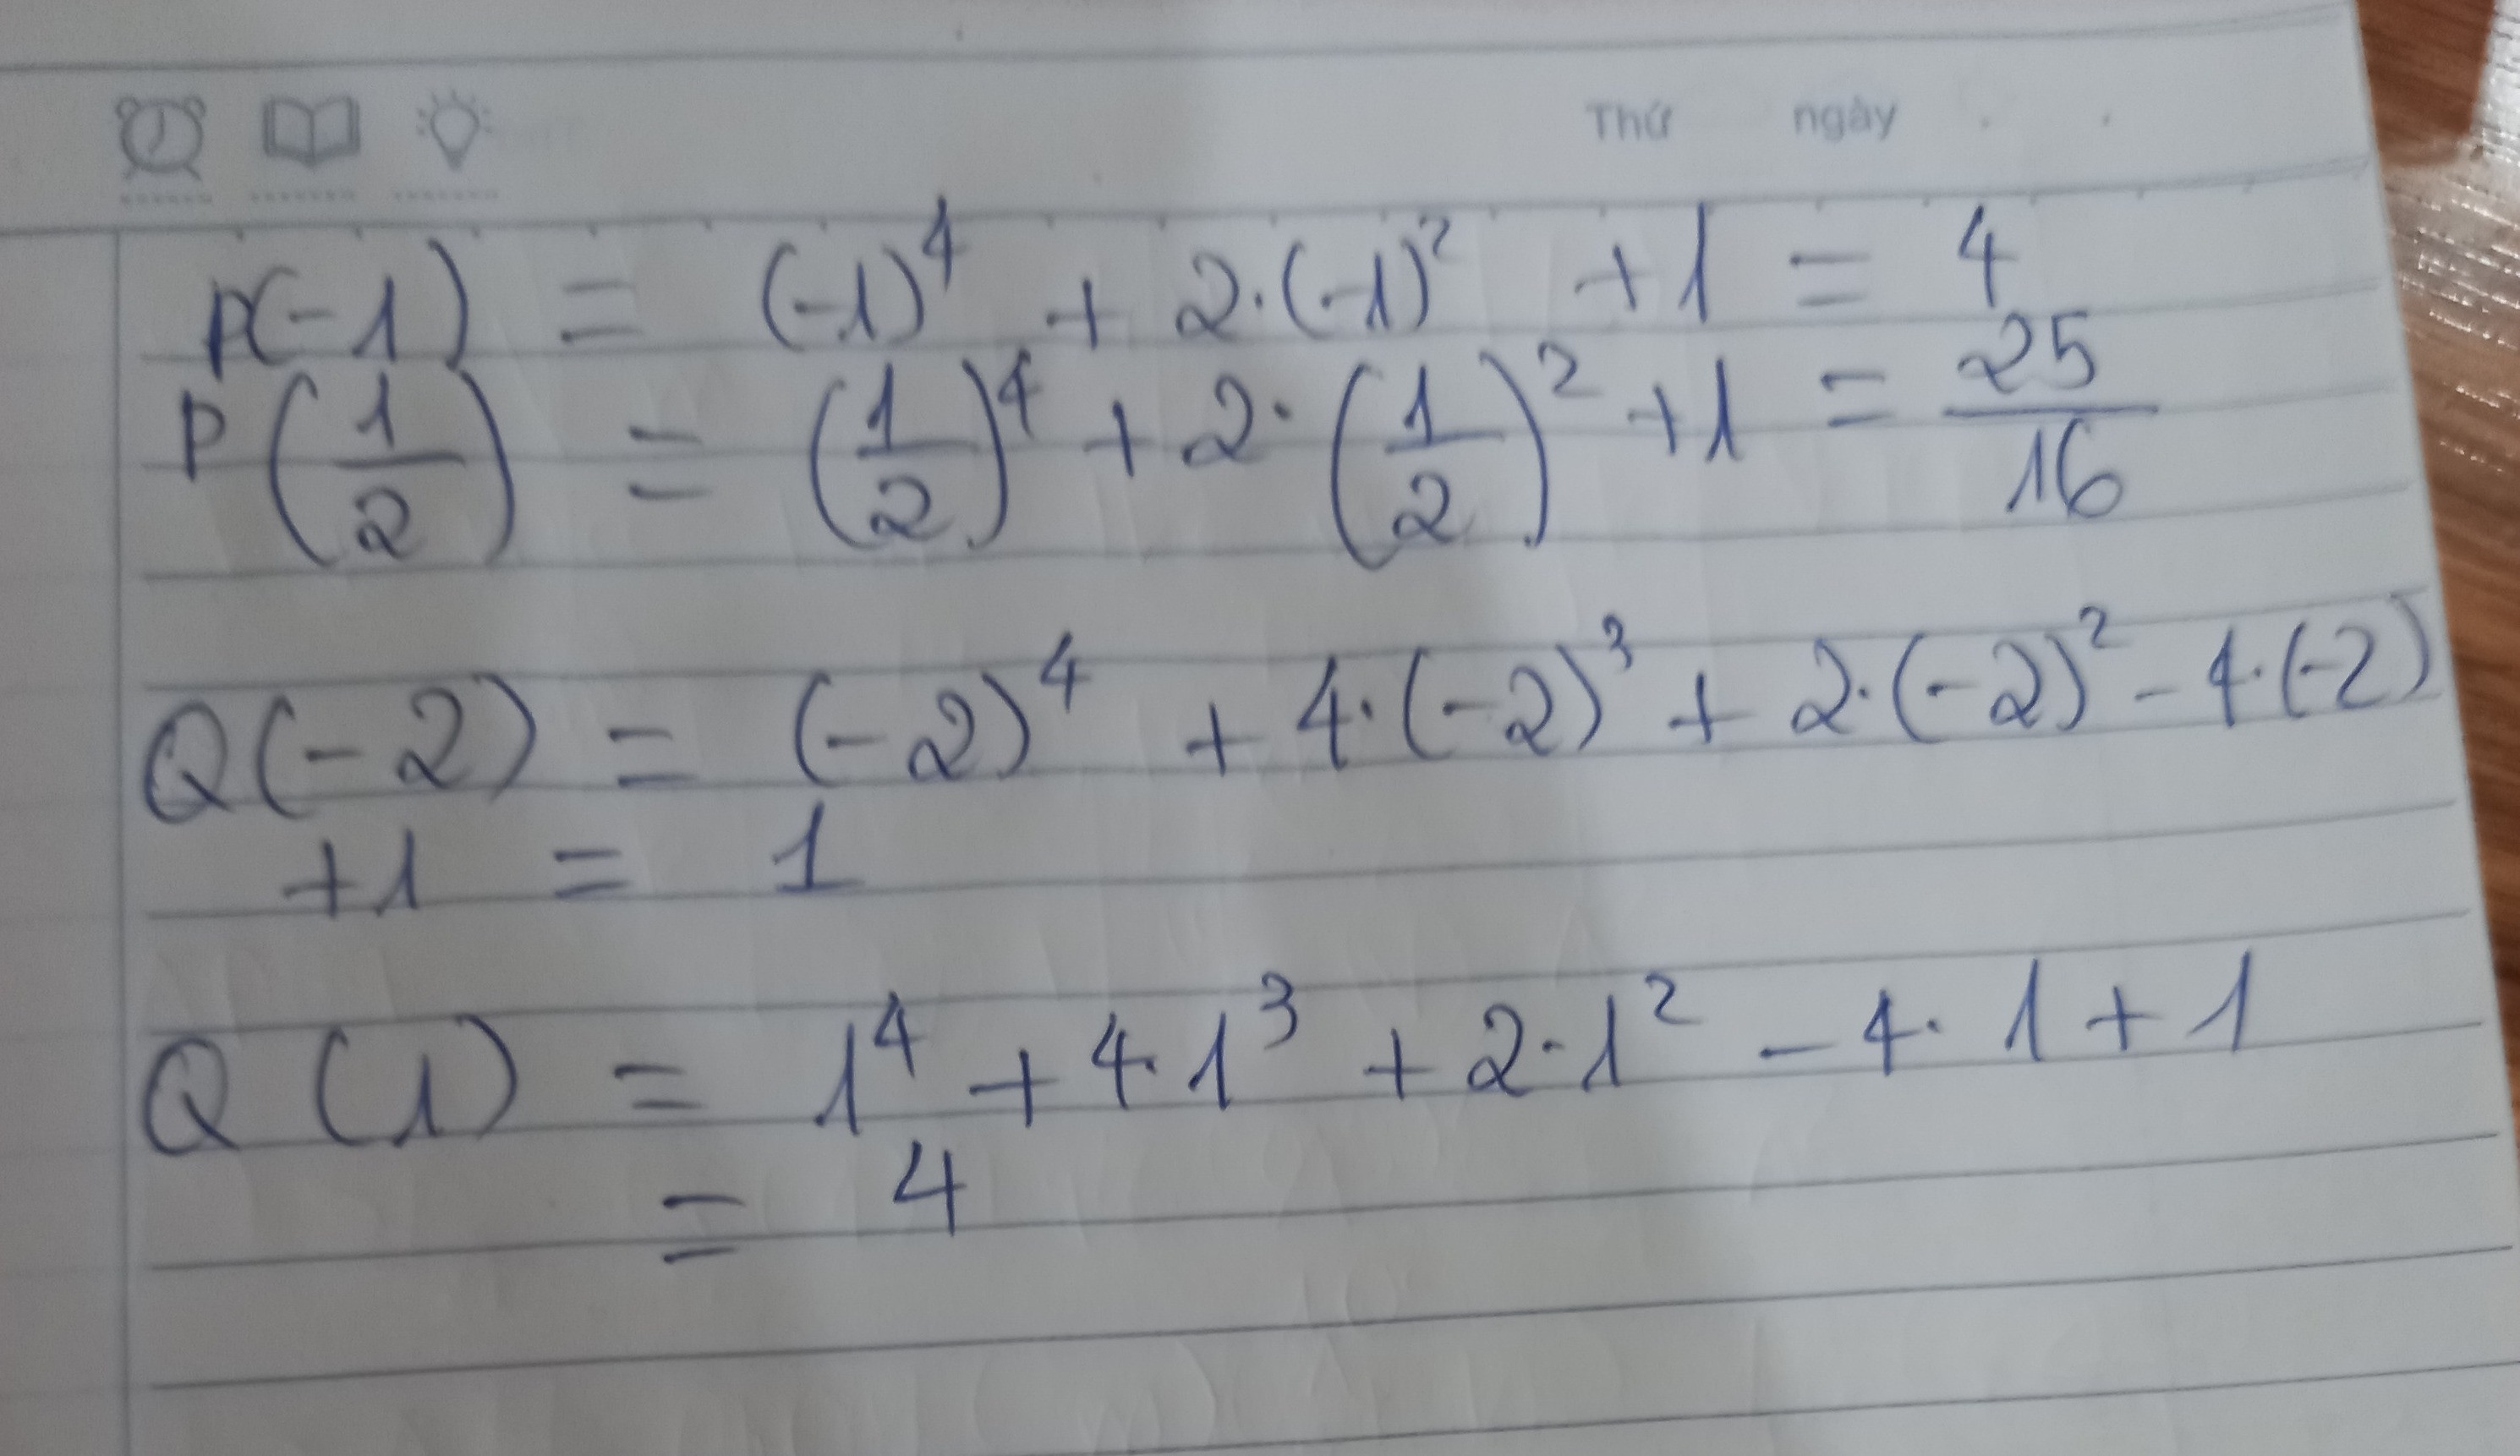 Thứ ngày
P(-1) = (-1)⁴ + 2·(-1)² +1 = 4
P(1/2) = (1/2)⁴ + 2·(1/2)² +1 = 25/16
Q(-2) = (-2)⁴ + 4·(-2)³ + 2·(-2)² - 4·(-2)
+1 = 1
Q (1) = 1⁴ + 4·1³ + 2·1² - 4·1 + 1
= 4